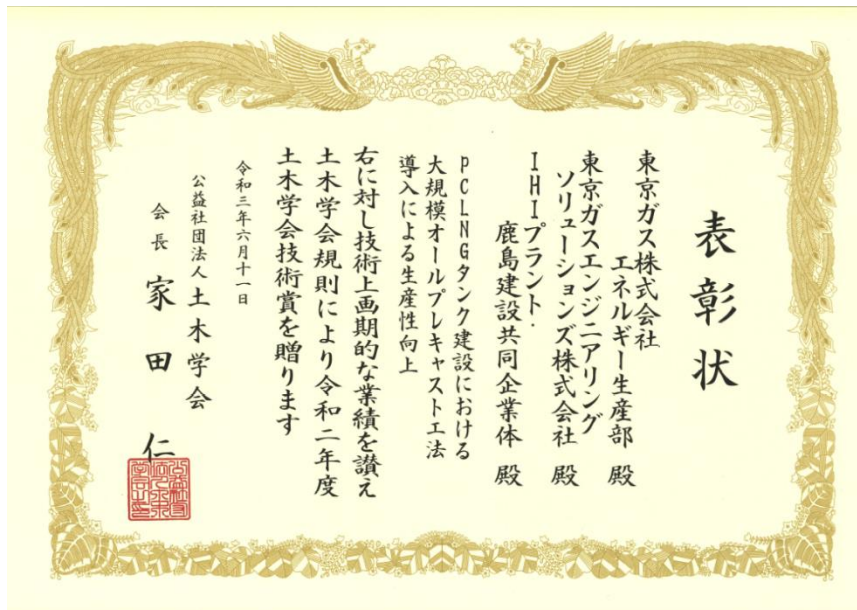 表彰状
東京ガス株式会社
エネルギー生産部 殿
東京ガスエンジニアリング
ソリューションズ株式会社 殿
IHIプラント・
鹿島建設共同企業体 殿
PCLNGタンク建設における
大規模オールプレキャスト工法
導入による生産性向上
右に対し技術上画期的な業績を讃え
土木学会規則により令和二年度
土木学会技術賞を贈ります
令和三年六月十一日
公益社団法人 土木学会
会長 家田 仁